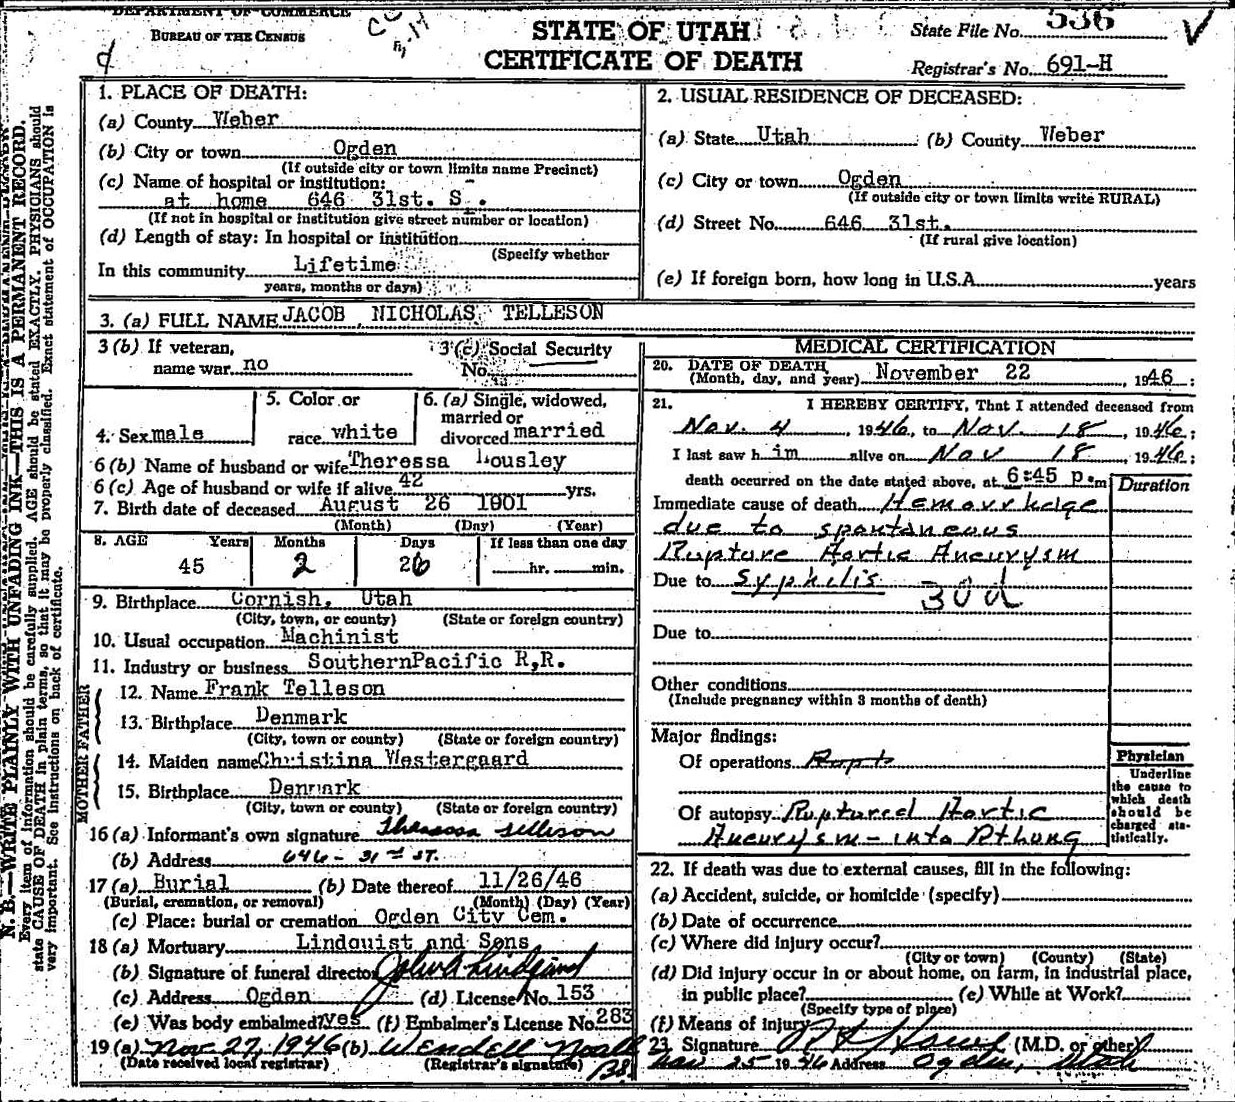 DEPARTMENT OF COMMERCE
BUREAU OF THE CENSUS
STATE OF UTAH
CERTIFICATE OF DEATH
State File No. 536
Registrar's No. 691-H
N. B.—WRITE PLAINLY WITH UNFADING INK—THIS IS A PERMANENT RECORD.
Every item of information should be carefully supplied. AGE should be stated EXACTLY. PHYSICIANS should
state CAUSE OF DEATH in plain terms, so that it may be properly classified. Exact statement of OCCUPATION is
very important. See instructions on back of certificate.
1. PLACE OF DEATH:
(a) County Weber
(b) City or town Ogden
(If outside city or town limits name Precinct)
(c) Name of hospital or institution:
at home 646 31st. S .
(If not in hospital or institution give street number or location)
(d) Length of stay: In hospital or institution
(Specify whether
In this community Lifetime
years, months or days)
2. USUAL RESIDENCE OF DECEASED:
(a) State Utah (b) County Weber
(c) City or town Ogden
(If outside city or town limits write RURAL)
(d) Street No. 646 31st.
(If rural give location)
(e) If foreign born, how long in U.S.A. years
3. (a) FULL NAME JACOB NICHOLAS TELLESON
3 (b) If veteran,
name war no
3 (c) Social Security
No.
4. Sex male
5. Color or
race white
6. (a) Single, widowed,
married or
divorced married
6 (b) Name of husband or wife Theressa Housley
6 (c) Age of husband or wife if alive 42 yrs.
7. Birth date of deceased August 26 1901
(Month) (Day) (Year)
8. AGE Years Months Days If less than one day
45 2 26 hr. min.
9. Birthplace Cornish, Utah
(City, town, or county) (State or foreign country)
10. Usual occupation Machinist
11. Industry or business SouthernPacific R,R.
FATHER
12. Name Frank Telleson
13. Birthplace Denmark
(City, town or county) (State or foreign country)
MOTHER
14. Maiden name Christina Westergaard
15. Birthplace Denmark
(City, town or county) (State or foreign country)
16 (a) Informant's own signature Theressa Telleson
(b) Address 646 - 31st ST.
17 (a) Burial (b) Date thereof 11/26/46
(Burial, cremation, or removal) (Month) (Day) (Year)
(c) Place: burial or cremation Ogden City Cem.
18 (a) Mortuary Lindquist and Sons
(b) Signature of funeral director John A Lindquist
(c) Address Ogden (d) License No. 153
(e) Was body embalmed? yes (f) Embalmer's License No. 283
19 (a) Nov 27, 1946 (b) Wendell Noall
(Date received local registrar) (Registrar's signature)
MEDICAL CERTIFICATION
20. DATE OF DEATH
(Month, day, and year) November 22, 1946;
21. I HEREBY CERTIFY, That I attended deceased from
Nov. 4, 1946, to Nov. 18, 1946;
I last saw him alive on Nov 18, 1946;
death occurred on the date stated above, at 6:45 p.m
Duration
Immediate cause of death Hemorrhage
due to spontaneous
Rupture Aortic Aneurysm
Due to Syphilis 30d
Due to
Other conditions
(Include pregnancy within 3 months of death)
Major findings:
Of operations Rupt
Of autopsy Ruptured Aortic
Aneurysm - into Rt Lung
Physician
Underline
the cause to
which death
should be
charged sta-
tistically.
22. If death was due to external causes, fill in the following:
(a) Accident, suicide, or homicide (specify)
(b) Date of occurrence
(c) Where did injury occur?
(City or town) (County) (State)
(d) Did injury occur in or about home, on farm, in industrial place,
in public place? (e) While at Work?
(Specify type of place)
(f) Means of injury
23. Signature (M.D. or other)
Nov 25 1946 Address Ogden, Utah